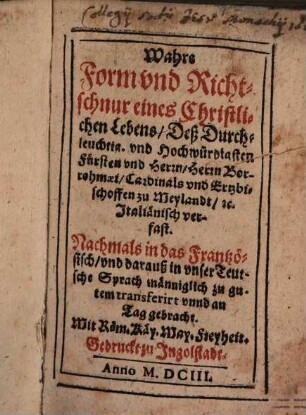 Collegij
Wahre
Form vnd Richt-
schnur eines Christli-
chen Lebens / Deß Durch-
leuchtig. vnd Hochwürdigsten
Fürsten vnd Herrn / Herrn Bor-
rohmæi / Cardinals vnd Ertzbi-
schoffen zu Meylandt / ꝛc.
Italiänisch ver-
fast.
Nachmals in das Frantzö-
sisch / vnd darauß in vnser Teut-
sche Sprach männiglich zu gu-
tem transferirt vnnd an
Tag gebracht.
Mit Röm. Käy. May. Freyheit.
Gedruckt zu Ingolstadt.
Anno M. DCIII.